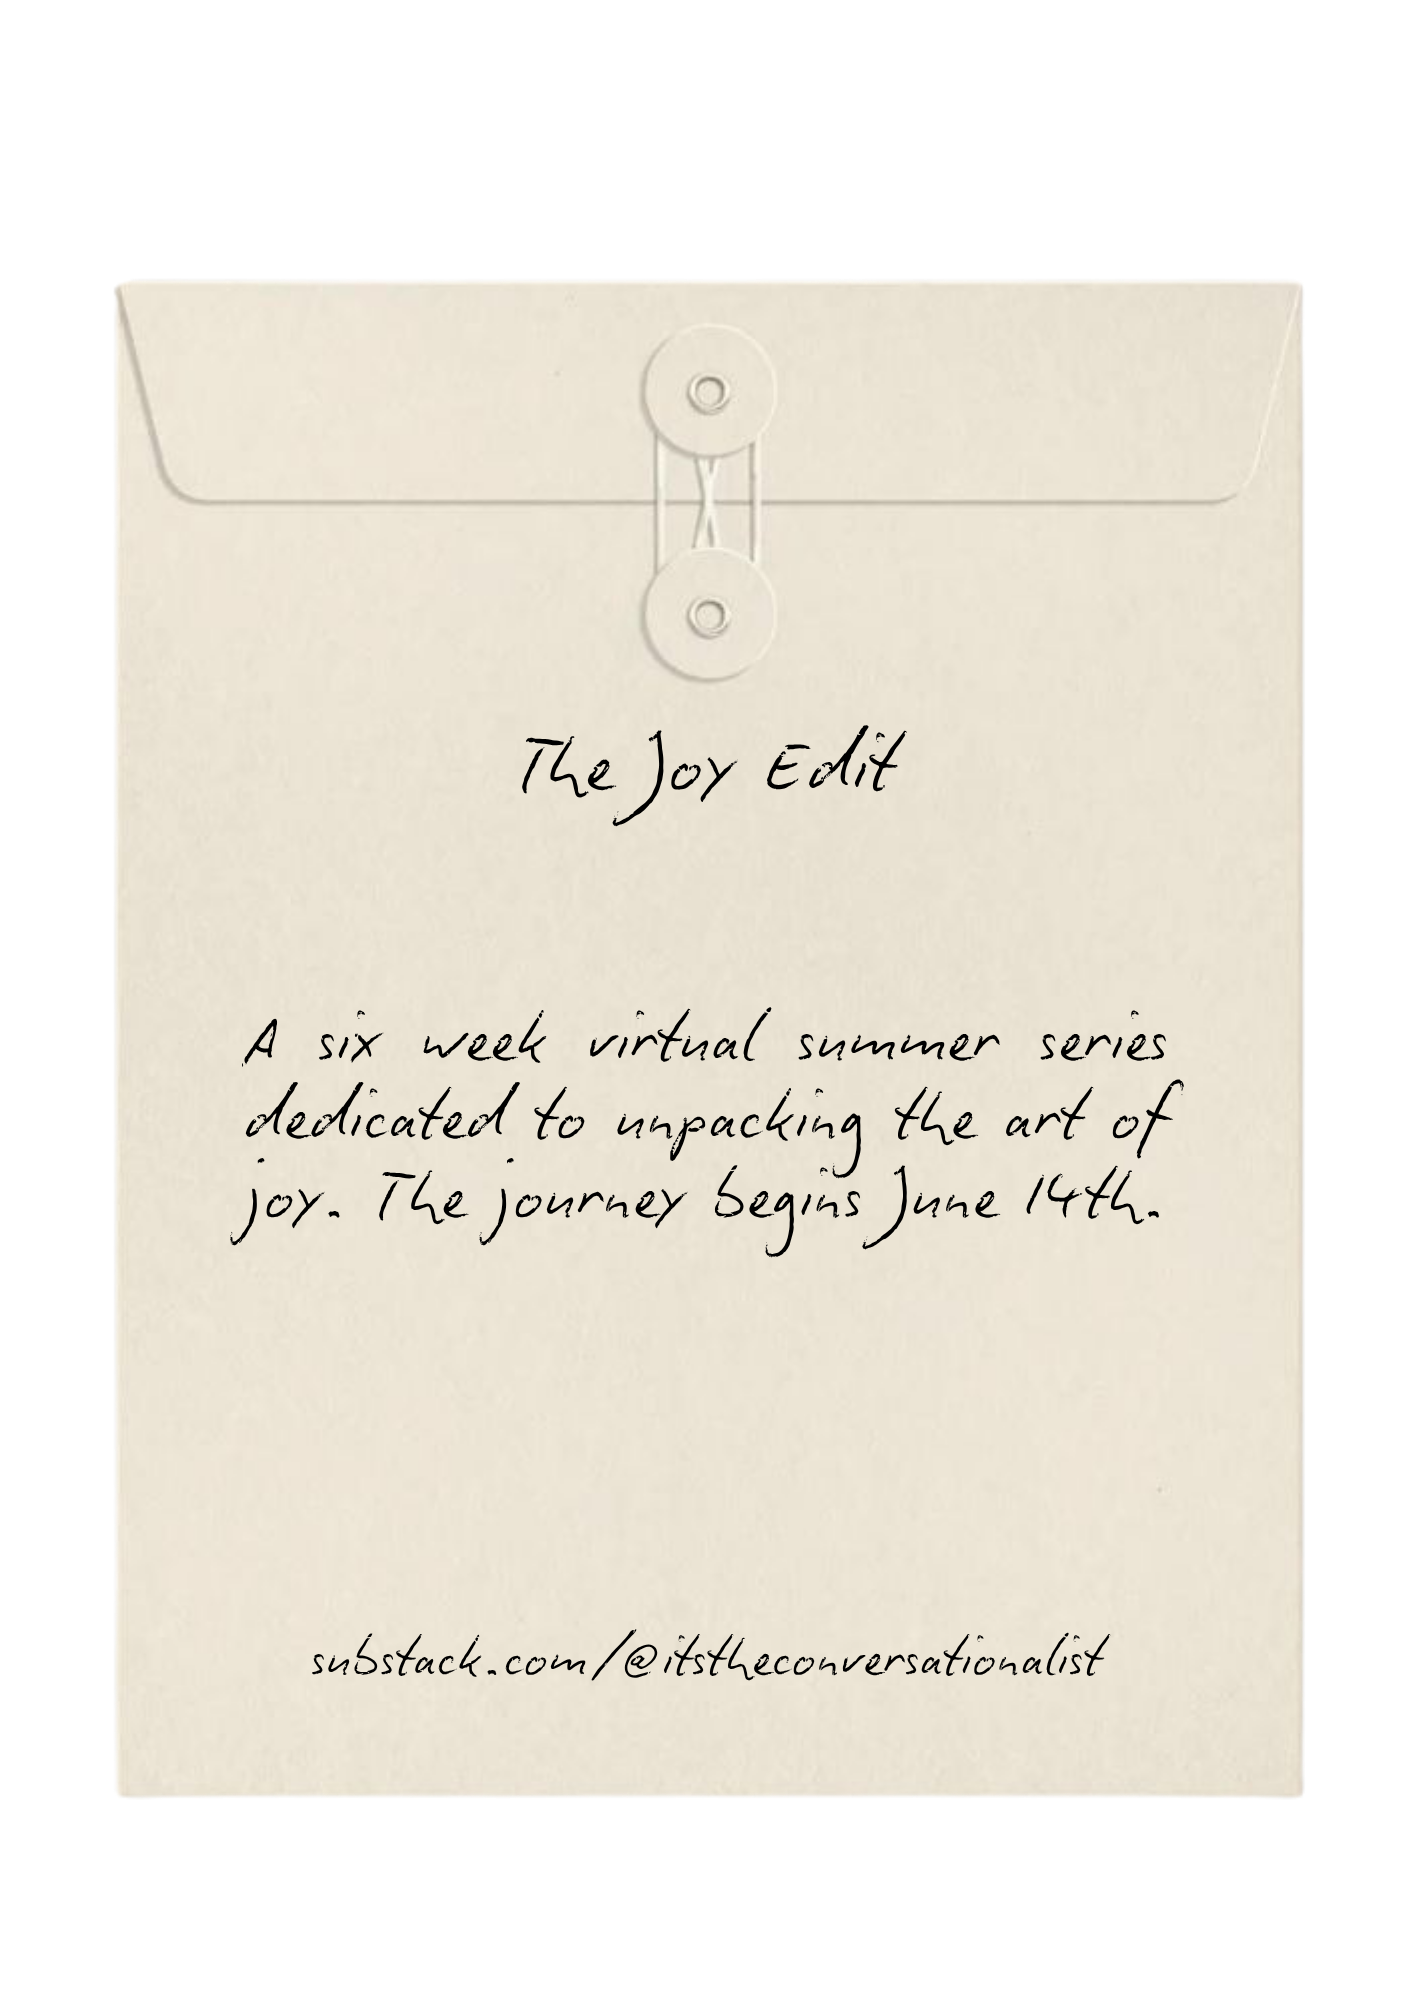 The Joy Edit
A six week virtual summer series
dedicated to unpacking the art of
joy. The journey begins June 14th.
substack.com/@itstheconversationalist